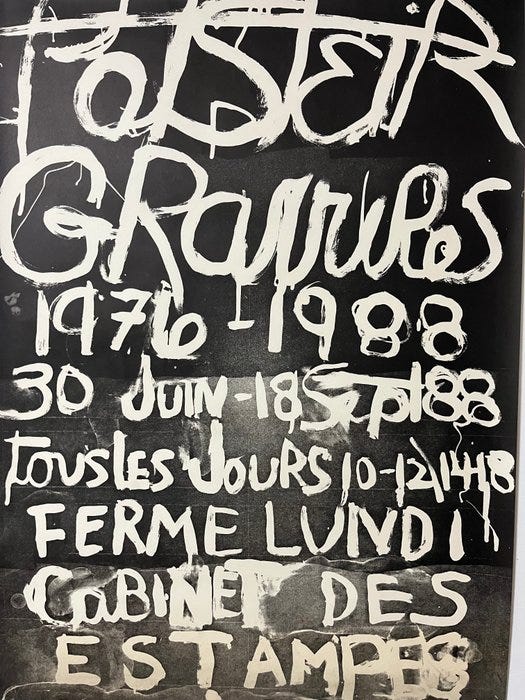 GRavures
1976-1988
30 JUIN-18 Sept 88
tous LES JOURS 10-12/14-18
FERME LUNDI
CaBINET DES
ESTAMPES